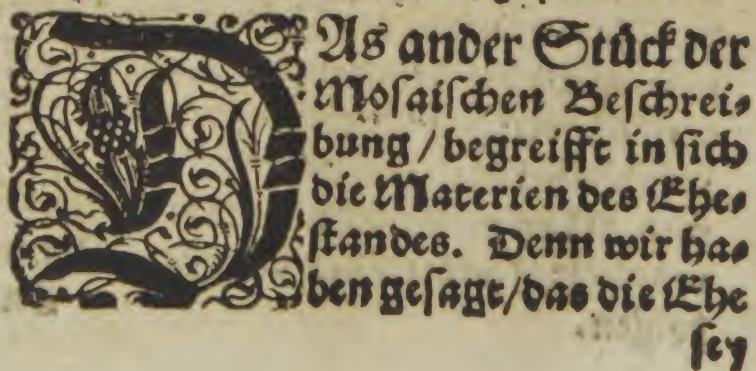 DAs ander Stück der
Moſaiſchen Beſchrei⸗
bung / begreifft in ſich
die Materien des Ehe⸗
ſtandes. Denn wir ha⸗
ben geſagt / das die Ehe
ſey